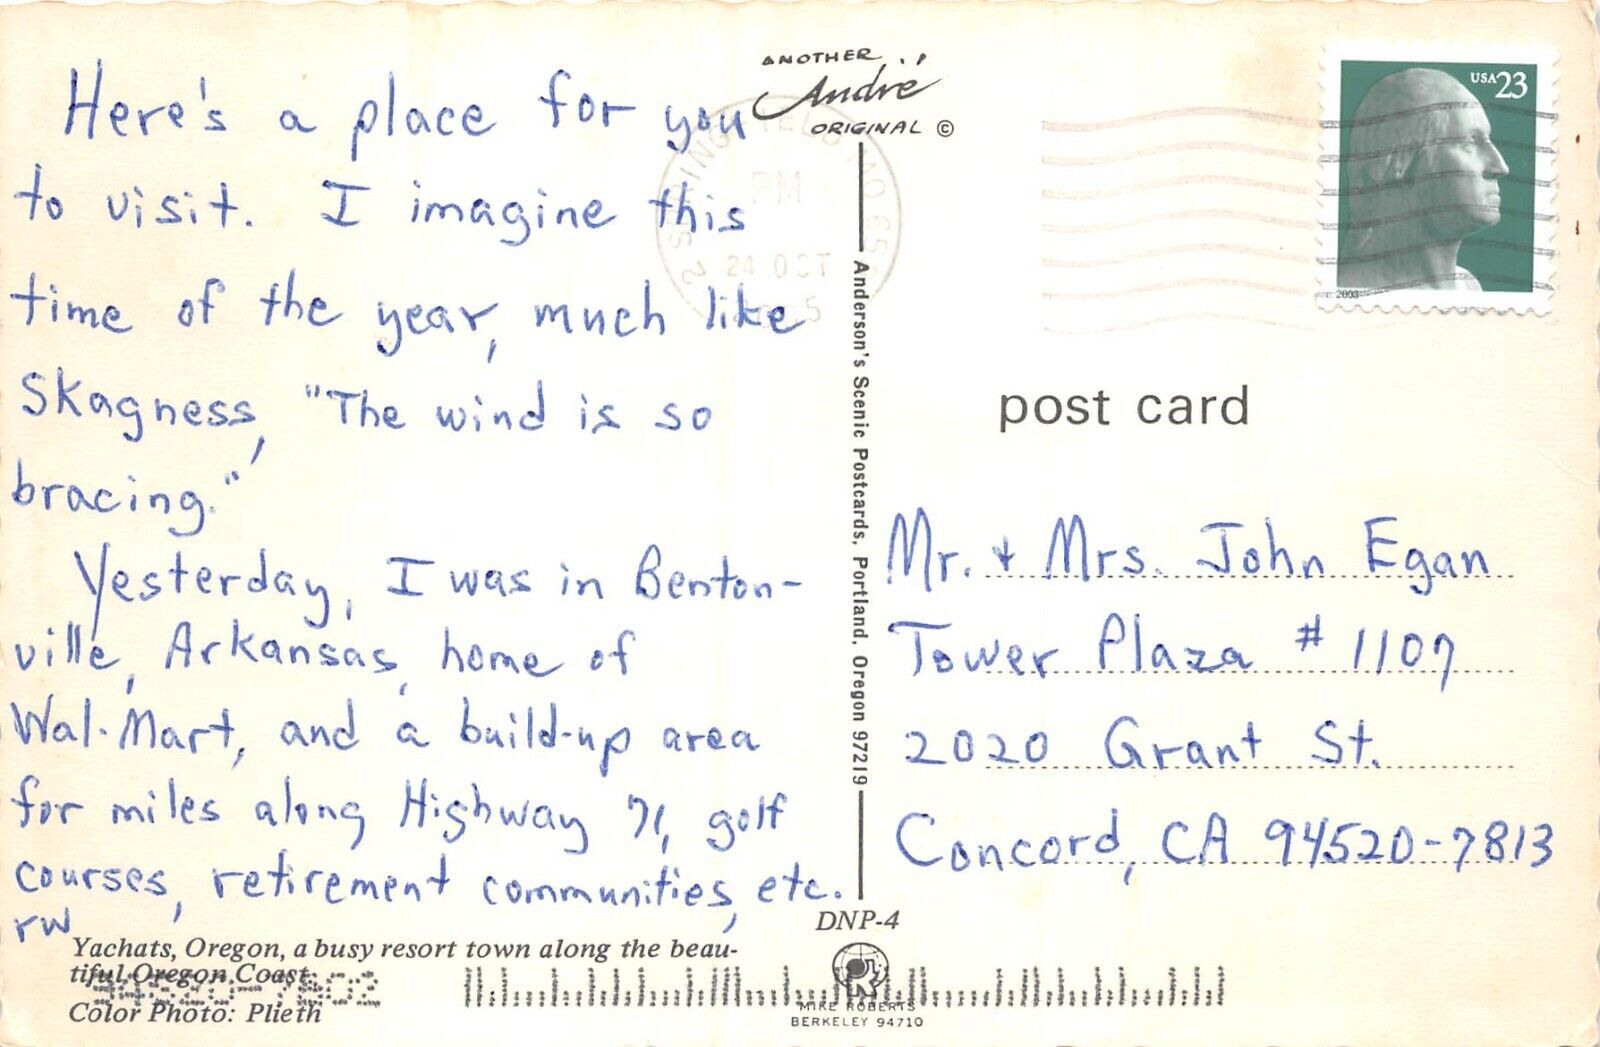 Here's a place for you
to visit. I imagine this
time of the year, much like
Skagness, "The wind is so
bracing."
Yesterday, I was in Benton-
ville, Arkansas, home of
Wal-Mart, and a build-up area
for miles along Highway 71, golf
courses, retirement communities, etc.
rw
Yachats, Oregon, a busy resort town along the beau-
tiful Oregon Coast
Color Photo: Plieth
ANOTHER
André
ORIGINAL ©
PM
24 OCT
Anderson's Scenic Postcards, Portland, Oregon 97219
DNP-4
MIKE ROBERTS
BERKELEY 94710
USA 23
2003
post card
Mr. + Mrs. John Egan
Tower Plaza # 1107
2020 Grant St.
Concord, CA 94520-7813